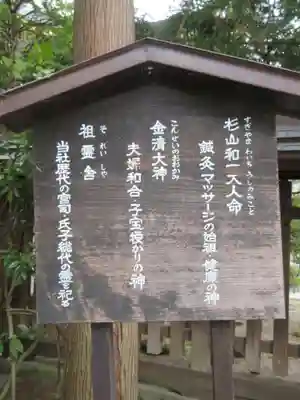 すぎやまわいちうしのみこと
杉山和一大人命
鍼灸マッサージの始祖・健康の神
こんせいのおおかみ
金清大神
夫婦和合・子宝授かりの神
それいしゃ
祖霊舎
当社歴代の宮司・氏子総代の霊を祀る